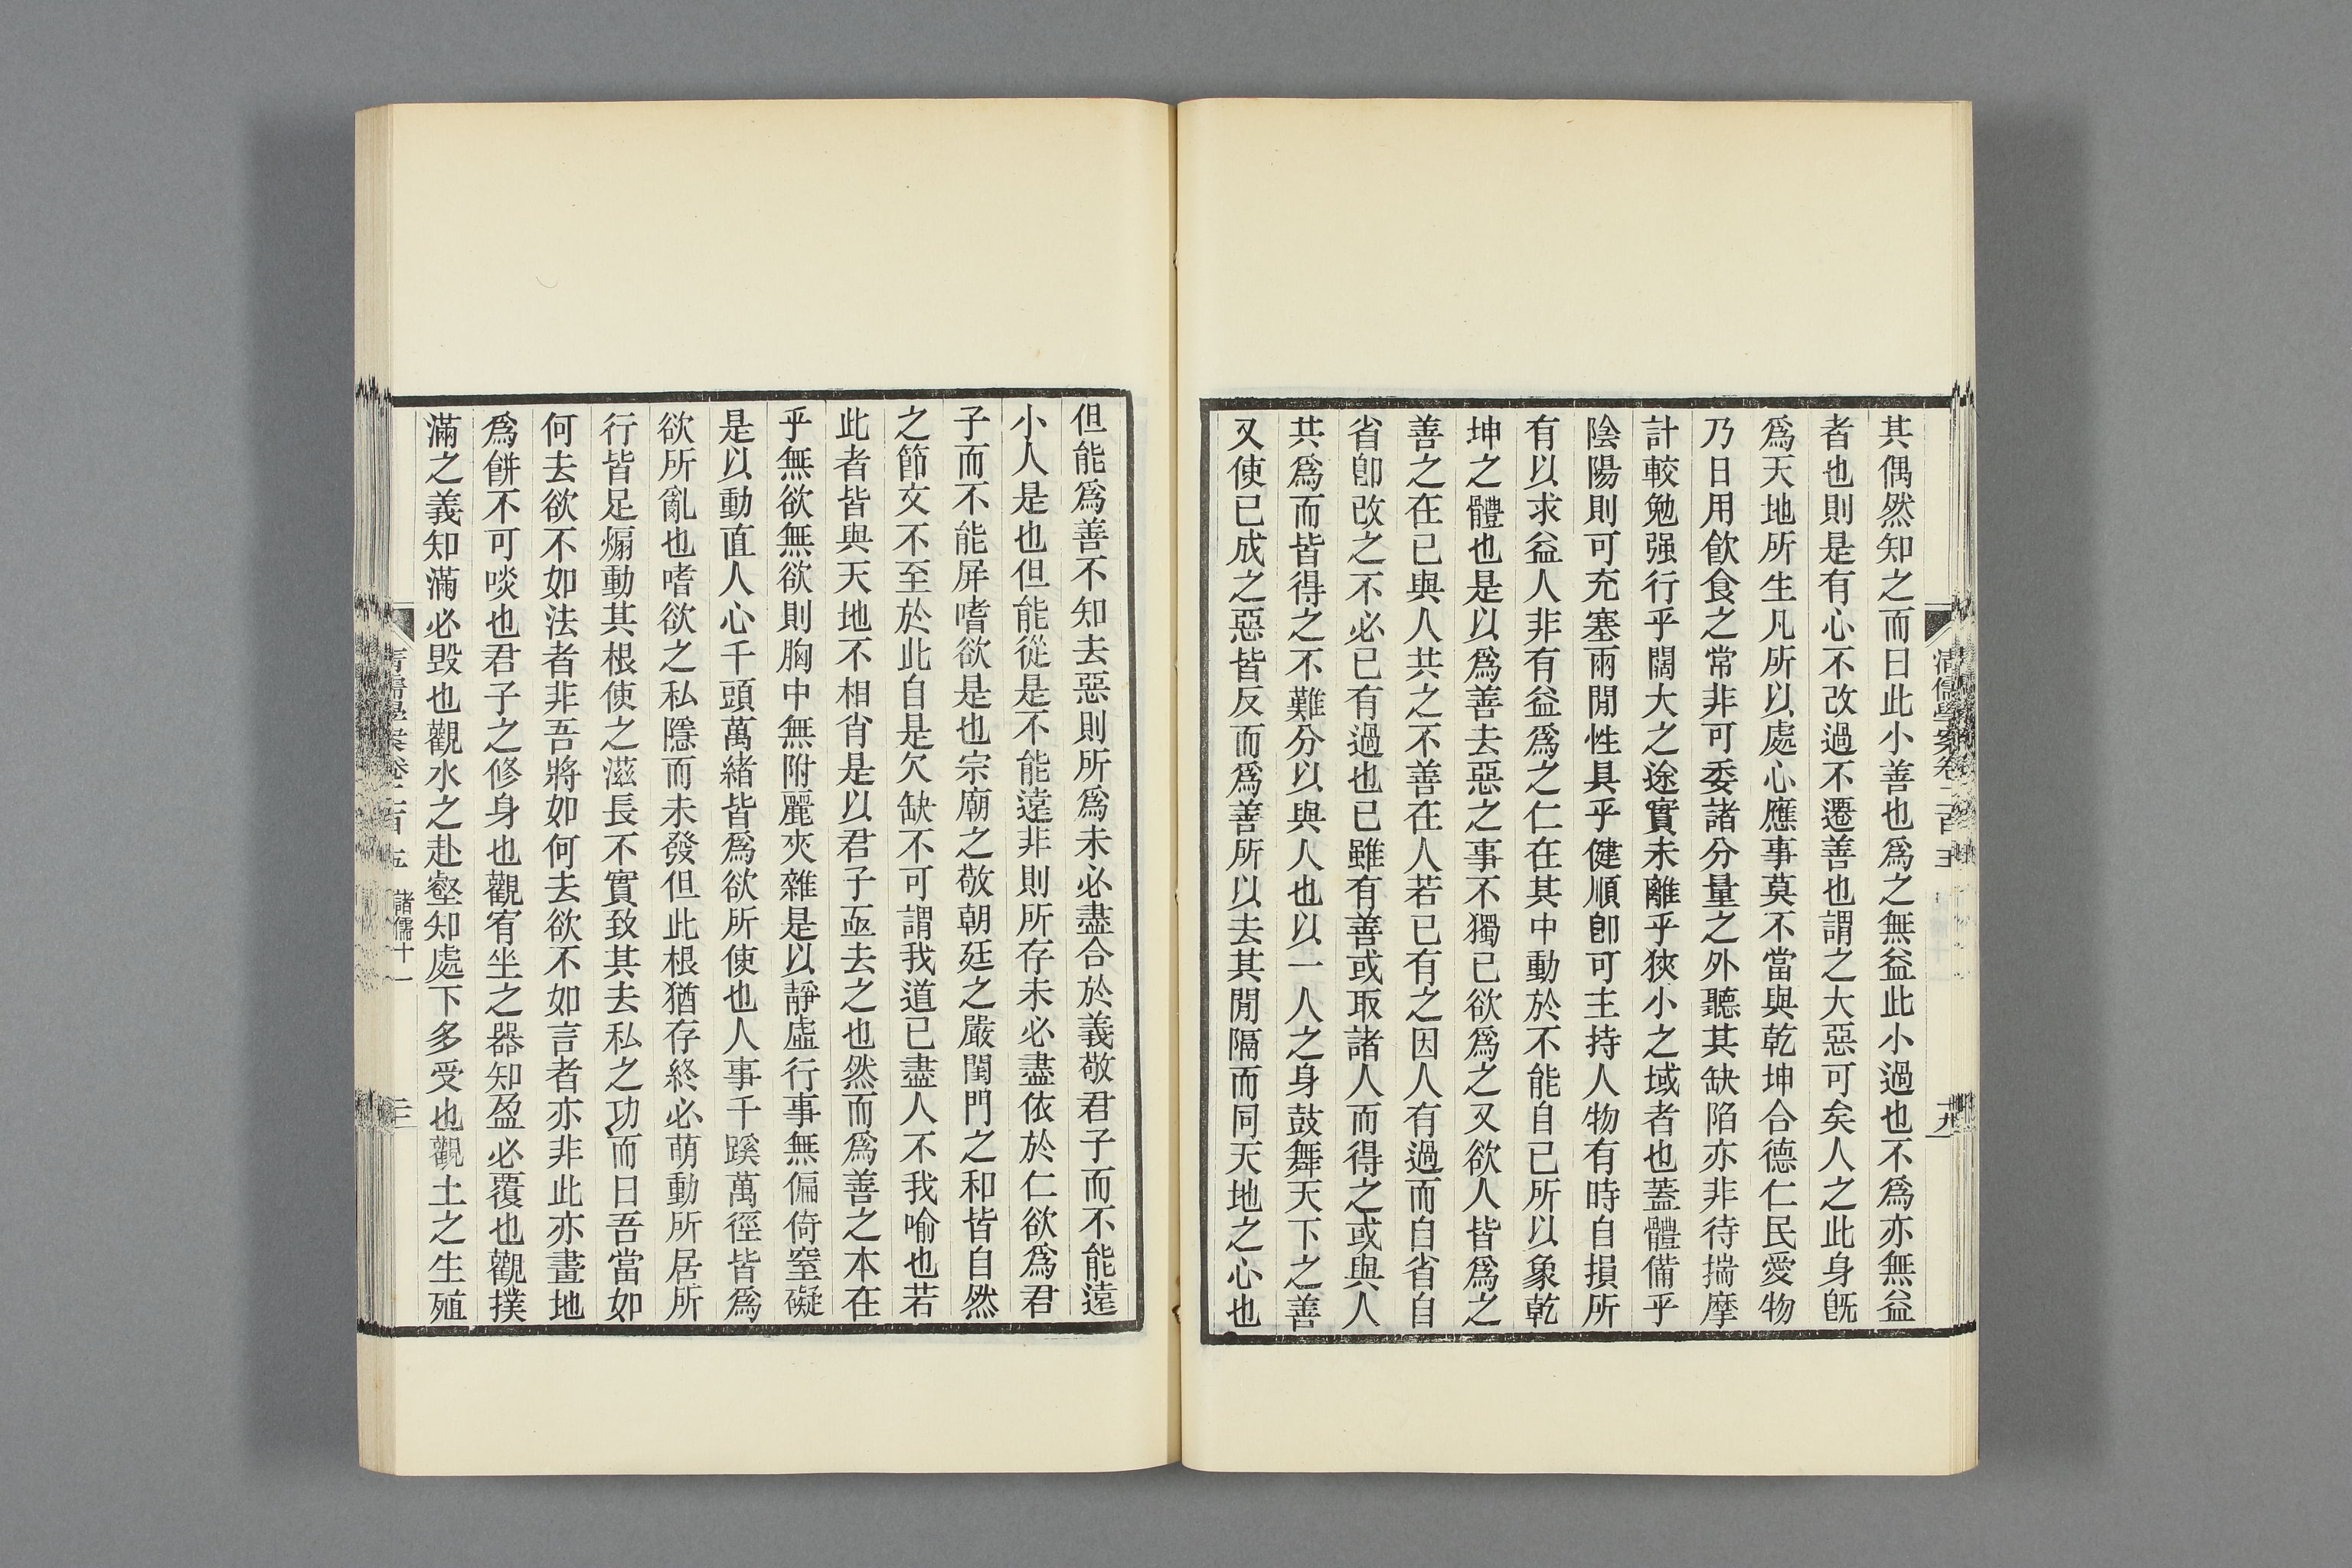 其偶然知之而曰此小善也爲之無益此小過也不爲亦無益
者也則是有心不改過不遷善也謂之大惡可矣人之此身旣
爲天地所生凡所以處心應事莫不當與乾坤合德仁民愛物
乃日用飮食之常非可委諸分量之外聽其缺陷亦非待揣摩
計較勉强行乎闊大之途實未離乎狹小之域者也蓋體備乎
陰陽則可充塞兩閒性具乎健順卽可主持人物有時自損所
有以求益人非有益爲之仁在其中動於不能自已所以象乾
坤之體也是以爲善去惡之事不獨已欲爲之又欲人皆爲之
善之在已與人共之不善在人若已有之因人有過而自省自
省卽改之不必已有過也已雖有善或取諸人而得之或與人
共爲而皆得之不難分以與人也以一人之身鼓舞天下之善
又使已成之惡皆反而爲善所以去其閒隔而同天地之心也
清儒學案卷二百五
十九
但能爲善不知去惡則所爲未必盡合於義敬君子而不能遠
小人是也但能從是不能遠非則所存未必盡依於仁欲爲君
子而不能屏嗜欲是也宗廟之敬朝廷之嚴閨門之和皆自然
之節文不至於此自是欠缺不可謂我道已盡人不我喻也若
此者皆與天地不相肖是以君子亟去之也然而爲善之本在
乎無欲無欲則胸中無附麗夾雜是以靜虛行事無偏倚窒礙
是以動直人心千頭萬緒皆爲欲所使也人事千蹊萬徑皆爲
欲所亂也嗜欲之私隱而未發但此根猶存終必萌動所居所
行皆足煽動其根使之滋長不實致其去私之功而日吾當如
何去欲不如法者非吾將如何去欲不如言者亦非此亦畫地
爲餠不可啖也君子之修身也觀宥坐之器知盈必覆也觀撲
滿之義知滿必毀也觀水之赴壑知處下多受也觀土之生殖
清儒學案卷二百五
諸儒十一